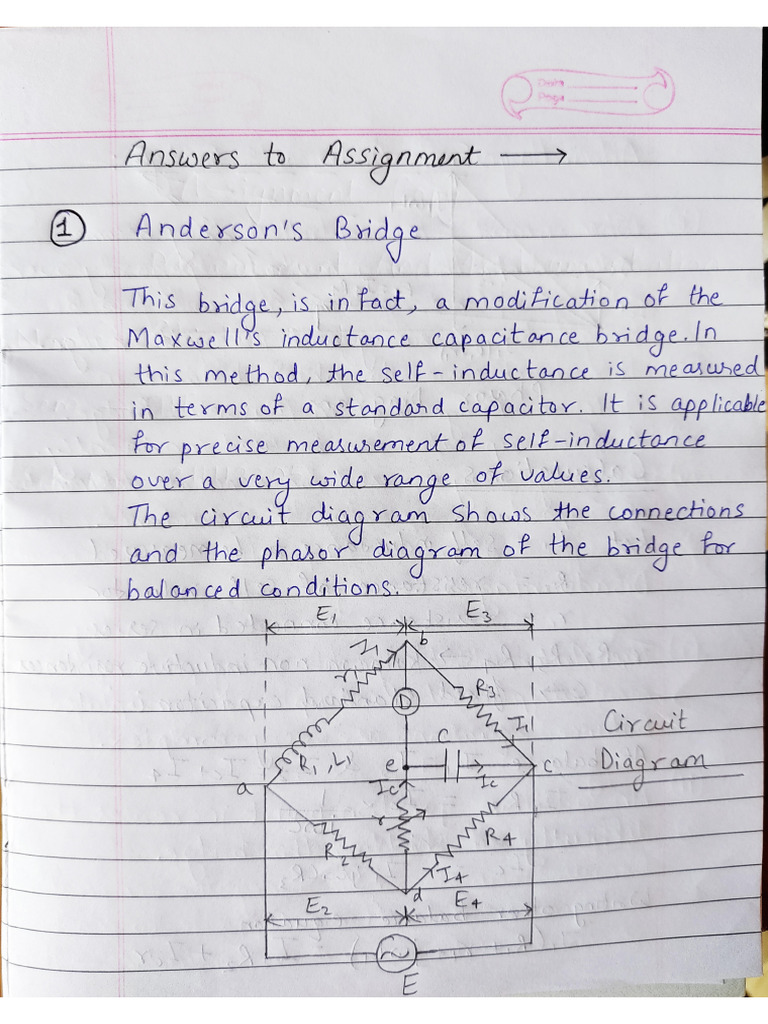 Date
Page
Answers to Assignment →
1 Anderson's Bridge
This bridge, is in fact, a modification of the
Maxwell's inductance capacitance bridge. In
this method, the self-inductance is measured
in terms of a standard capacitor. It is applicable
for precise measurement of self-inductance
over a very wide range of values.
The circuit diagram shows the connections
and the phasor diagram of the bridge for
balanced conditions.
E1 E3
b
I1 r1
D
R3
I1
Circuit
Diagram
R1, L1
C
e
Ic
c
a
Ic
r
R2
R4
I4
d
E2 E4
E